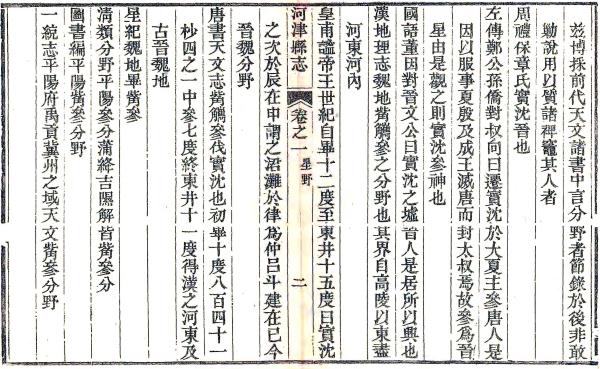 茲博採前代天文諸書中言分野者節錄於後非敢
勦說用以質諸禆竈其人者
周禮保章氏實沈晉也
左傳鄭公孫僑對叔向曰遷實沈於大夏主參唐人是
因以服事夏殷及成王滅唐而封太叔焉故參爲晉
星由是觀之則實沈參神也
國語董因對晉文公曰實沈之墟晉人是居所以興也
漢地理志魏地觜觿參之分野也其界自高陵以東盡
河東河內
皇甫謐帝王世紀自畢十二度至東井十五度曰實沈
河津縣志
卷之一
星野
二
之次於辰在申謂之涒灘於律爲仲呂斗建在巳今
晉魏分野
唐書天文志觜觿參伐實沈也初畢十度八百四十一
杪四之一中參七度終東井十一度得漢之河東及
古晉魏地
星紀魏地畢觜參
清類分野平陽參分蒲絳吉隰解皆觜參分
圖書編平陽觜參分野
一統志平陽府禹貢冀州之域天文觜參分野